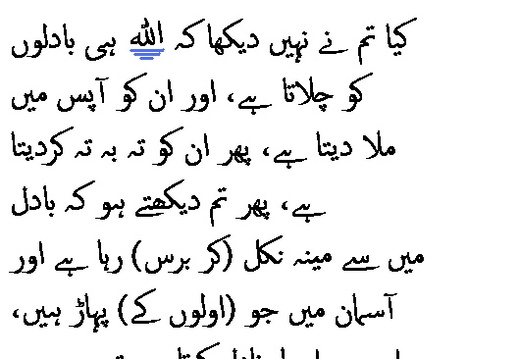 کیا تم نے نہیں دیکھا کہ الله ہی بادلوں
کو چلاتا ہے، اور ان کو آپس میں
ملا دیتا ہے، پھر ان کو تہ بہ تہ کردیتا
ہے، پھر تم دیکھتے ہو کہ بادل
میں سے مینہ نکل (کر برس) رہا ہے اور
آسمان میں جو (اولوں کے) پہاڑ ہیں،